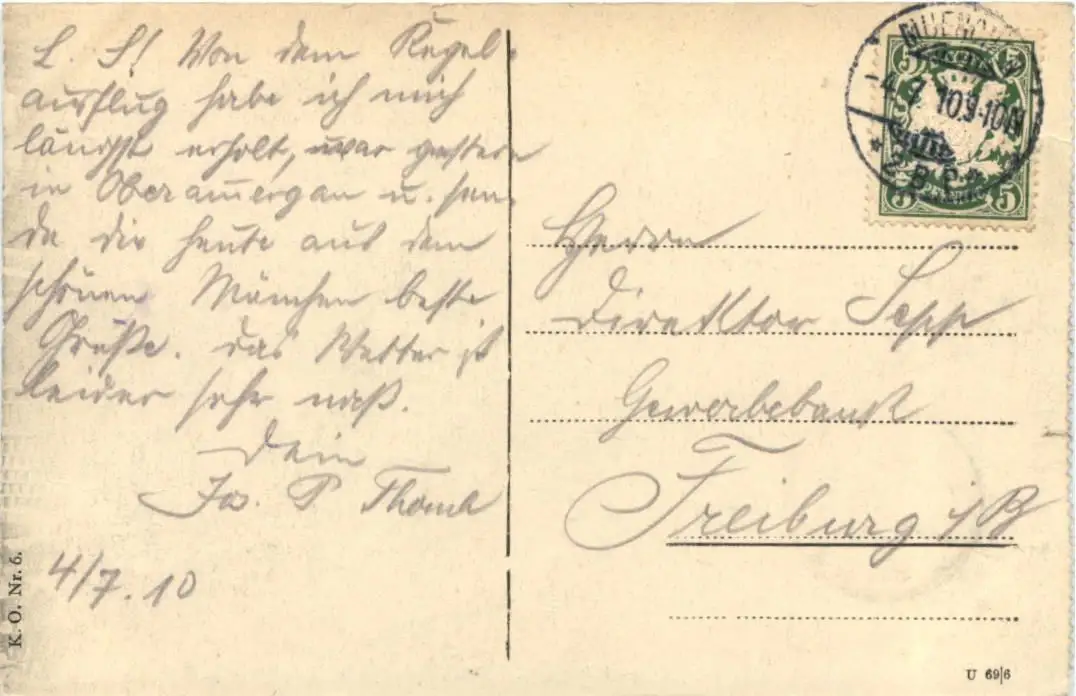 L. S! Von dem Kegel-
ausflug habe ich mich
längst erholt, war gestern
in Oberammergau u. sen-
de dir heute aus dem
schönen München beste
Grüße. Das Wetter ist
leider sehr naß.
Dein
Jos. P. Thoma
4/7.10
K.-O. Nr. 6.
5 5
4. 7. 10. 9-10
* 2. B.P. *
5 5
Herrn
Direktor Sepp
Gewerbebank
Freiburg i/B
U 69/6